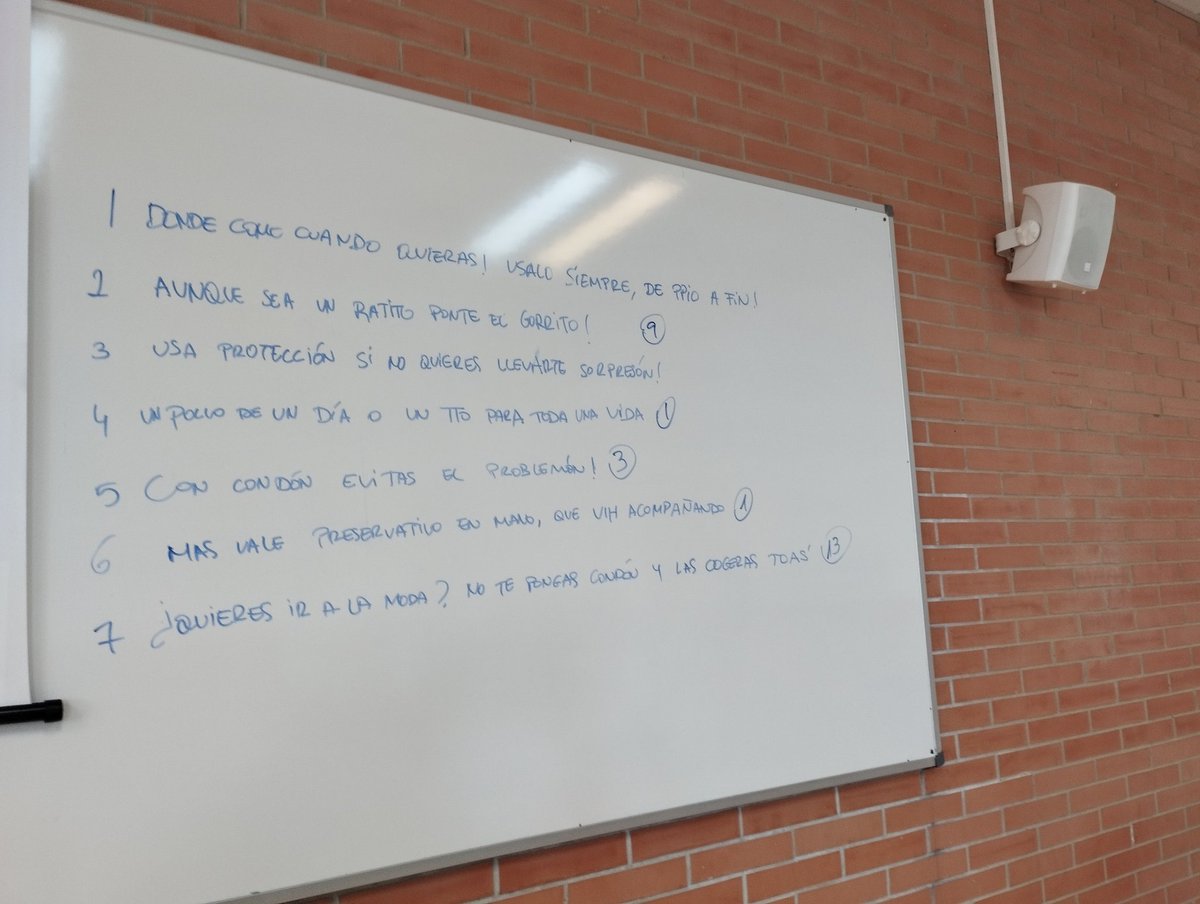 1 DONDE COMO CUANDO QUIERAS! USALO SIEMPRE, DE PPIO A FIN!
2 AUNQUE SEA UN RATITO PONTE EL GORRITO! 9
3 USA PROTECCIÓN SI NO QUIERES LLEVÁRTE SORPRESÓN!
4 UN POLLO DE UN DÍA O UN TTO PARA TODA UNA VIDA 1
5 CON CONDÓN EVITAS EL PROBLEMÓN! 3
6 MAS VALE PRESERVATIVO EN MANO, QUE VIH ACOMPAÑANDO 1
7 ¿QUIERES IR A LA MODA? NO TE PONGAS CONDÓN Y LAS COGERAS TOAS' 13